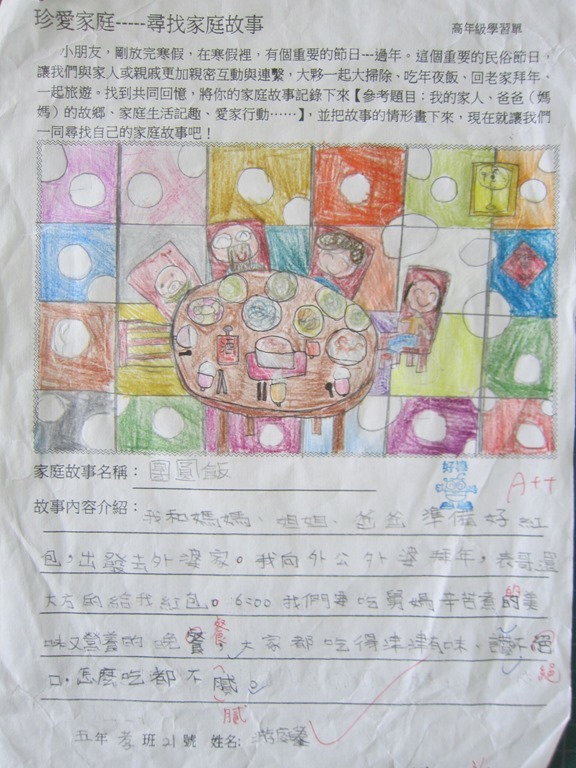 珍愛家庭-----尋找家庭故事
高年級學習單
小朋友，剛放完寒假，在寒假裡，有個重要的節日---過年。這個重要的民俗節日，
讓我們與家人或親戚更加親密互動與連繫，大夥一起大掃除、吃年夜飯、回老家拜年、
一起旅遊。找到共同回憶，將你的家庭故事記錄下來【參考題目：我的家人、爸爸（媽
媽）的故鄉、家庭生活記趣、愛家行動……】，並把故事的情形畫下來，現在就讓我們
一同尋找自己的家庭故事吧！
家庭故事名稱：團圓飯
好棒
A++
故事內容介紹：我和媽媽、姐姐、爸爸準備好紅
包，出發去外婆家。我向外公外婆拜年，表哥還
大方的給我紅包。6:00我們要吃舅媽辛苦煮的美
的
味又營養的晚餐，大家都吃得津津有味，讚不絕
餐
絕
口，怎麼吃都不膩。
膩
五年孝班21號 姓名:游